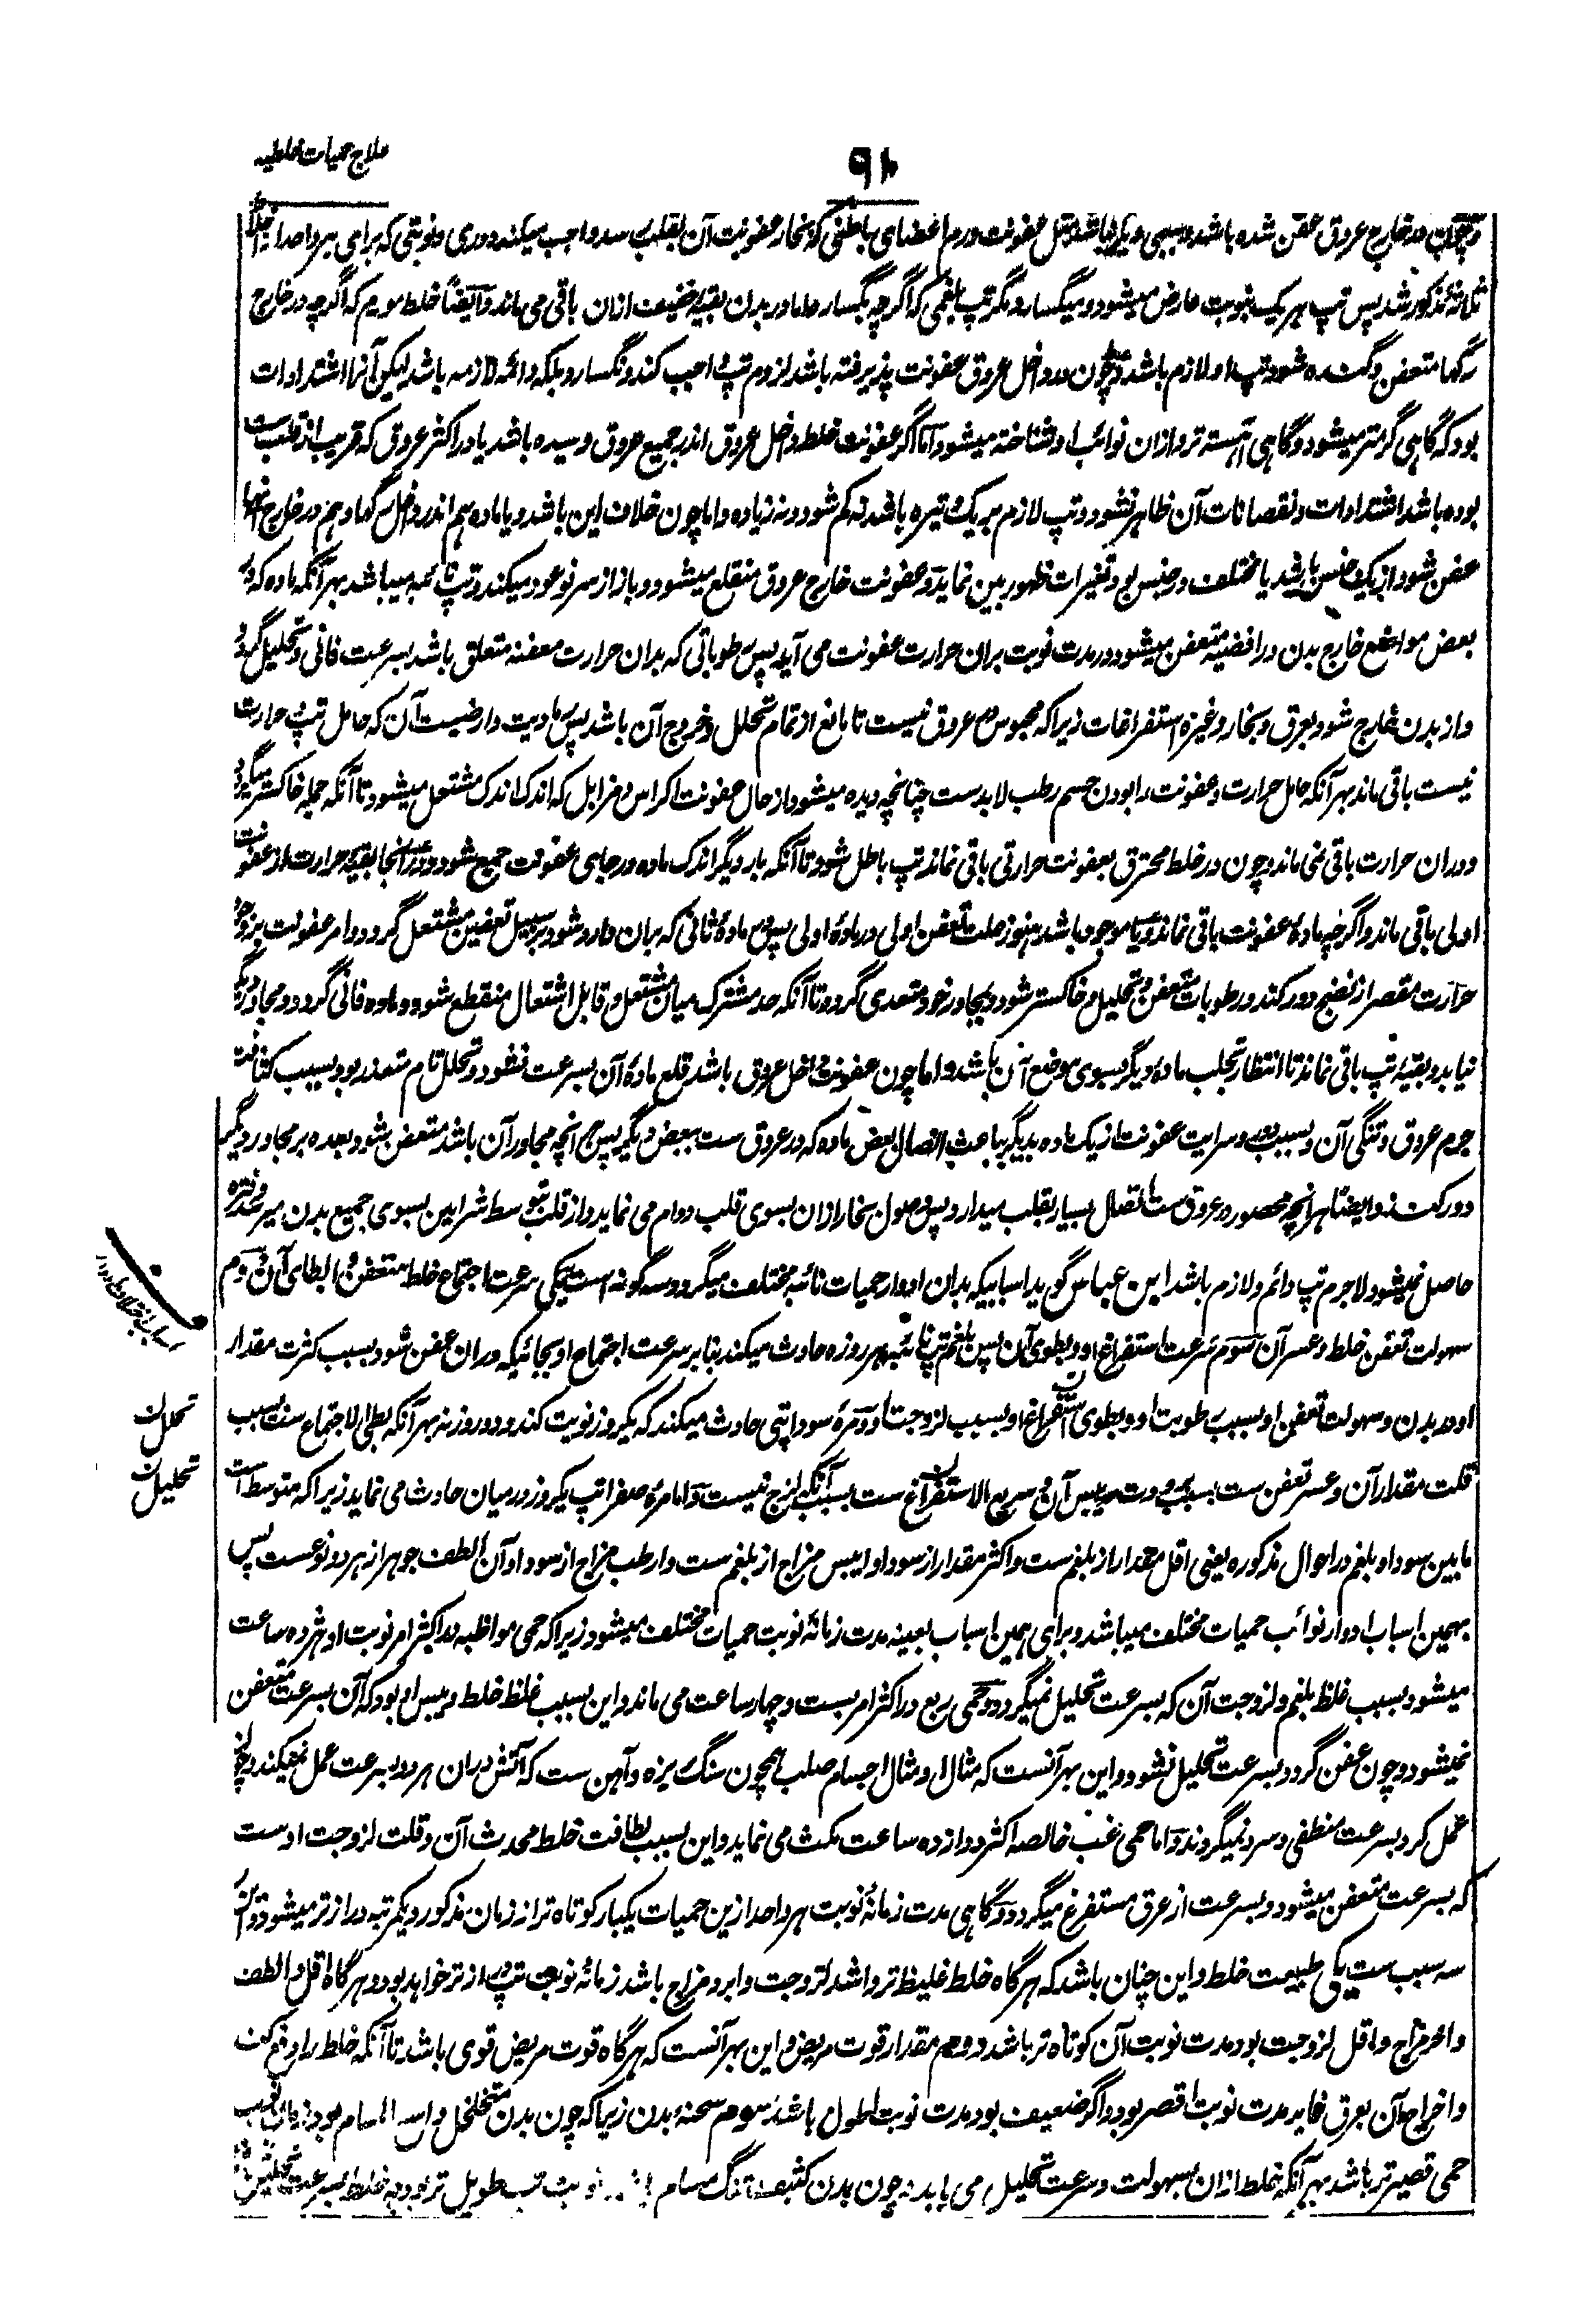 علاج حمیات خلطیه
۹۱
وچون در خارج عروق عفن شده باشد و سببی دیگر باشد مثل عفونت ورم اعضای باطنی که بخار عفونت آن بقلب رسد واجب میکند دوری و نوبتی که برای هر واحد اخلاط
ثلاثه مذکور شد پس تپ هر یک بنوبت عارض میشود و میگسارد مگر تپ بلغمی که اگر چه بگسارد اما در بدن بقیه خفیف ازان باقی می ماند و ایضاً خلط مورم که اگر چه در خارج
رگها متعفن و گنده شود تپ او لازم باشد و چون در داخل عروق عفونت پذیرفته باشد لزوم تپ واجب کند و نگسارد بلکه دائمه لازمه باشد لیکن آنرا اشتدادات
بود که گاهی گرمتر میشود و گاهی آهسته تر و ازان نوائب او شناخته میشود و اما اگر عفونت خلط داخل عروق اندر جمیع عروق رسیده باشد یا در اکثر عروق که قریب از قلب ست
بوده باشد اشتدادات و نقصانات آن ظاهر نشود و تپ لازم بر یک وتیره باشد نه کم شود و نه زیاده و اما چون خلاف این باشد و یا ماده هم اندر داخل رگها و هم در خارج آنها
عفن شود از یک جنس باشد یا مختلف در جنس بود تغیرات ظهور بین نماید و عفونت خارج عروق منقلع میشود و باز از سر نو عود میکند و تپ نائبه میباشد بهر آنکه ماده که در
بعض مواضع خارج بدن در افضیه متعفن میشود در مدت نوبت بران حرارت عفونت می آید پس رطوباتی که بدان حرارت معفنه متعلق باشد بسرعت فانی و تحلیل گردد
و از بدن خارج شود بعرق و بخار و غیره استفراغات زیرا که محبوس در عروق نیست تا مانع از تمام تحلل و خروج آن باشد پس مادیت و ارضیت آن که حامل تپ و حرارت
نیست باقی ماند بهر آنکه حامل حرارت و عفونت را بودن جسم رطب لابدست چنانچه دیده میشود از حال عفونت اکراس و مزابل که اندک اندک مشتعل میشود تا آنکه جمله خاکستر میگردد
و دران حرارت باقی نمی ماند و چون در خلط محترق بعفونت حرارتی باقی نماند تپ باطل شود تا آنکه بار دیگر اندک ماده در جای عفونت جمع شود و در انجا بقیه حرارت از عفونت
اولی باقی ماند و اگر چه ماده عفونت باقی نماند و یا موجود باشد هنوز علت تعفن اولی در ماده اولی پس در ماده ثانی که بران وارد شود بر سبیل تعفین مشتعل گردد و امر عفونت بر وجه
حرارت مقصر از نضج دور کند و رطوبات متعفن و تحلیل و خاکستر شود و بمجاور خود متعدی گردد تا آنکه حد مشترک میان مشتعل و قابل اشتعال منقطع شود و ماده فانی گردد و مجاور دیگر
نیابد و بقیه تپ باقی نماند تا انتظار تجلب ماده دیگر بسوی موضع آن باشد و اما چون عفونت داخل عروق باشد قلع ماده آن بسرعت نشود و تحلل تام متعذر بود بسبب کثافت
جرم عروق و تنگی آن و بسبب دور و سرایت عفونت از یک ماده بدیگر بباعث اتصال بعض ماده که در عروق ست ببعض دیگر پس هر آنچه مجاور آن باشد متعفن شود بعده بر مجاور دیگر
دور کند و ایضاً هر آنچه محصور در عروق ست اتصال بسیار بقلب میدارد پس وصول بخار ازان بسوی قلب دوام می نماید و از قلب بتوسط شرایین بسوی جمیع بدن میرسد و فتره
حاصل نمیشود لاجرم تپ دائم و لازم باشد ابن عباس گوید اسبابیکه بدان ادوار حمیات نائبه مختلف میگردد سه گونه است یکی سرعت اجتماع خلط متعفن و ابطای آن دوم
سهولت تعفن خلط و عسر آن سوم سرعت استفراغ او و بطوی آن پس بلغم تپ نائبه هر روزه حادث میکند بنابر سرعت اجتماع او بجائیکه دران عفن شود بسبب کثرت مقدار
او در بدن و سهولت تعفن او بسبب رطوبت او و بطوی استفراغ او بسبب لزوجت او و مره سودا تپی حادث میکند که یکروز نوبت کند و دو روز نه بهر آنکه بطی الاجتماع ست بسبب
قلت مقدار آن و عسر تعفن ست بسبب برودت و یبس آن و سریع الاستفراغ ست بسبب آنکه لزج نیست و اما مره صفرا تپ یکروز در میان حادث می نماید زیرا که متوسط است
مابین سودا و بلغم در احوال مذکوره یعنی اقل مقدار از بلغم ست و اکثر مقدار از سودا و ایبس مزاج از بلغم ست و ارطب مزاج از سودا و آن الطف جوهر از هر دو نوع ست پس
بهمین اسباب ادوار نوائب حمیات مختلف میباشد و برای همین اسباب بعینه مدت زمانه نوبت حمیات مختلف میشود زیرا که حمی مواظبه در اکثر امر نوبت او هژده ساعت
میشود بسبب غلظ بلغم و لزوجت آن که بسرعت تحلیل نمیگردد و حمی ربع در اکثر امر بست و چهار ساعت می ماند و این بسبب غلظ خلط و یبس او بود که آن بسرعت متعفن
نمیشود و چون عفن گردد بسرعت تحلیل نشود و این بهر آنست که مثال او مثال اجسام صلب همچون سنگ ریزه و آهن ست که آتش دران هر دو بسرعت عمل نمیکند و چون
عمل کرد بسرعت منطفی و سرد نمیگردند و اما حمی غب خالصه اکثر دوازده ساعت مکث می نماید و این بسبب لطافت خلط محدث آن و قلت لزوجت اوست
که بسرعت متعفن میشود و بسرعت از عرق مستفرغ میگردد و گاهی مدت زمانه نوبت هر واحد ازین حمیات یکبار کوتاه تر از زمان مذکور و یکمرتبه درازتر میشود و این
سه سبب ست یکی طبیعت خلط و این چنان باشد که هرگاه خلط غلیظ تر و اشد لزوجت و ابرد مزاج باشد زمانه نوبت تپ درازتر خواهد بود و هرگاه اقل و الطف
و احر مزاج و اقل لزوجت بود مدت نوبت آن کوتاه تر باشد دوم مقدار قوت مریض و این بهر آنست که هرگاه قوت مریض قوی باشد تا آنکه خلط را دفع کند
و اخراج آن بعرق نماید مدت نوبت اقصر بود و اگر ضعیف بود مدت نوبت اطول باشد سوم سحنه بدن زیرا که چون بدن متخلخل و واسع المسام بود زمان نوبت
حمی قصیرتر باشد بهر آنکه خلط ازان بسهولت و سرعت تحلیل می یابد و چون بدن کثیف و تنگ مسام نوبت تپ طویل تر بود چه خلط بسرعت تحلیل
تحللن
تحلیلن